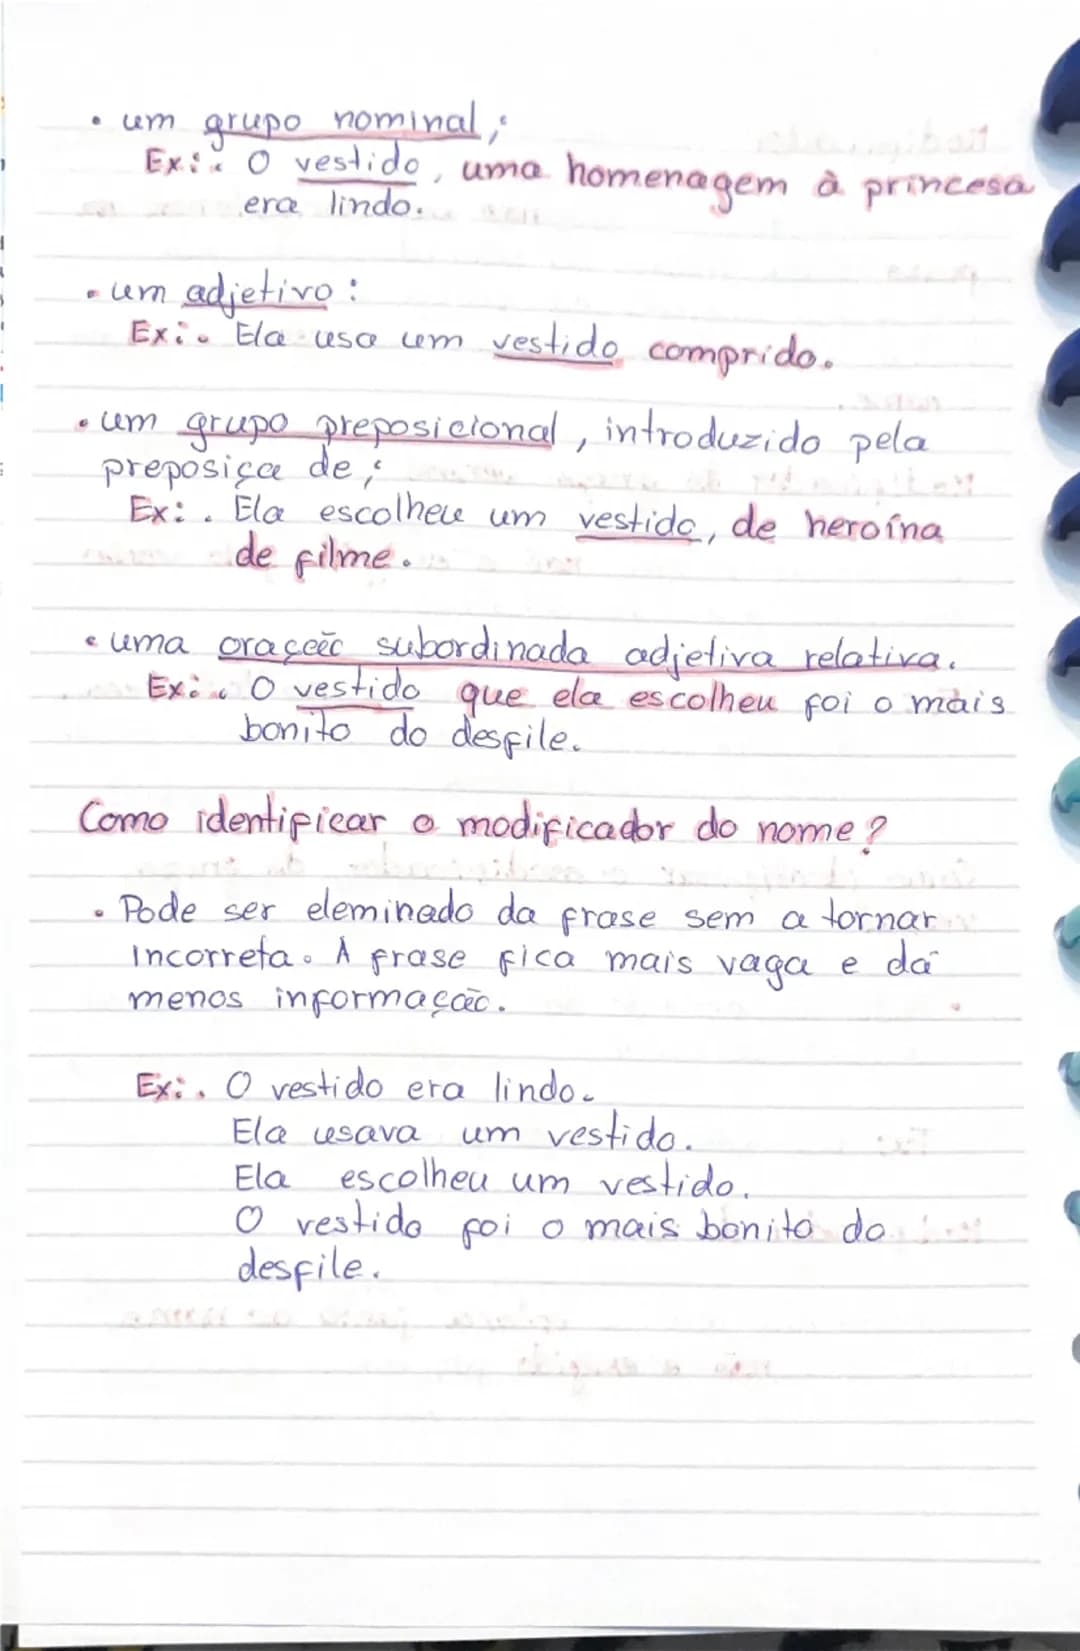 • um grupo nominal;
Ex: . O vestido, uma homenagem à princesa
era lindo.
• um adjetivo:
Ex: . Ela usa um vestido comprido.
• um grupo preposicional, introduzido pela
preposiça de;
Ex: . Ela escolheu um vestido, de heroína
de filme.
• uma oração subordinada adjetiva relativa.
Ex: . O vestido que ela escolheu foi o mais
bonito do desfile.
Como identificar o modificador do nome?
• Pode ser eleminado da frase sem a tornar
incorreta. A frase fica mais vaga e dá
menos informação.
Ex: . O vestido era lindo.
Ela usava um vestido.
Ela escolheu um vestido.
O vestido foi o mais bonito do
desfile.